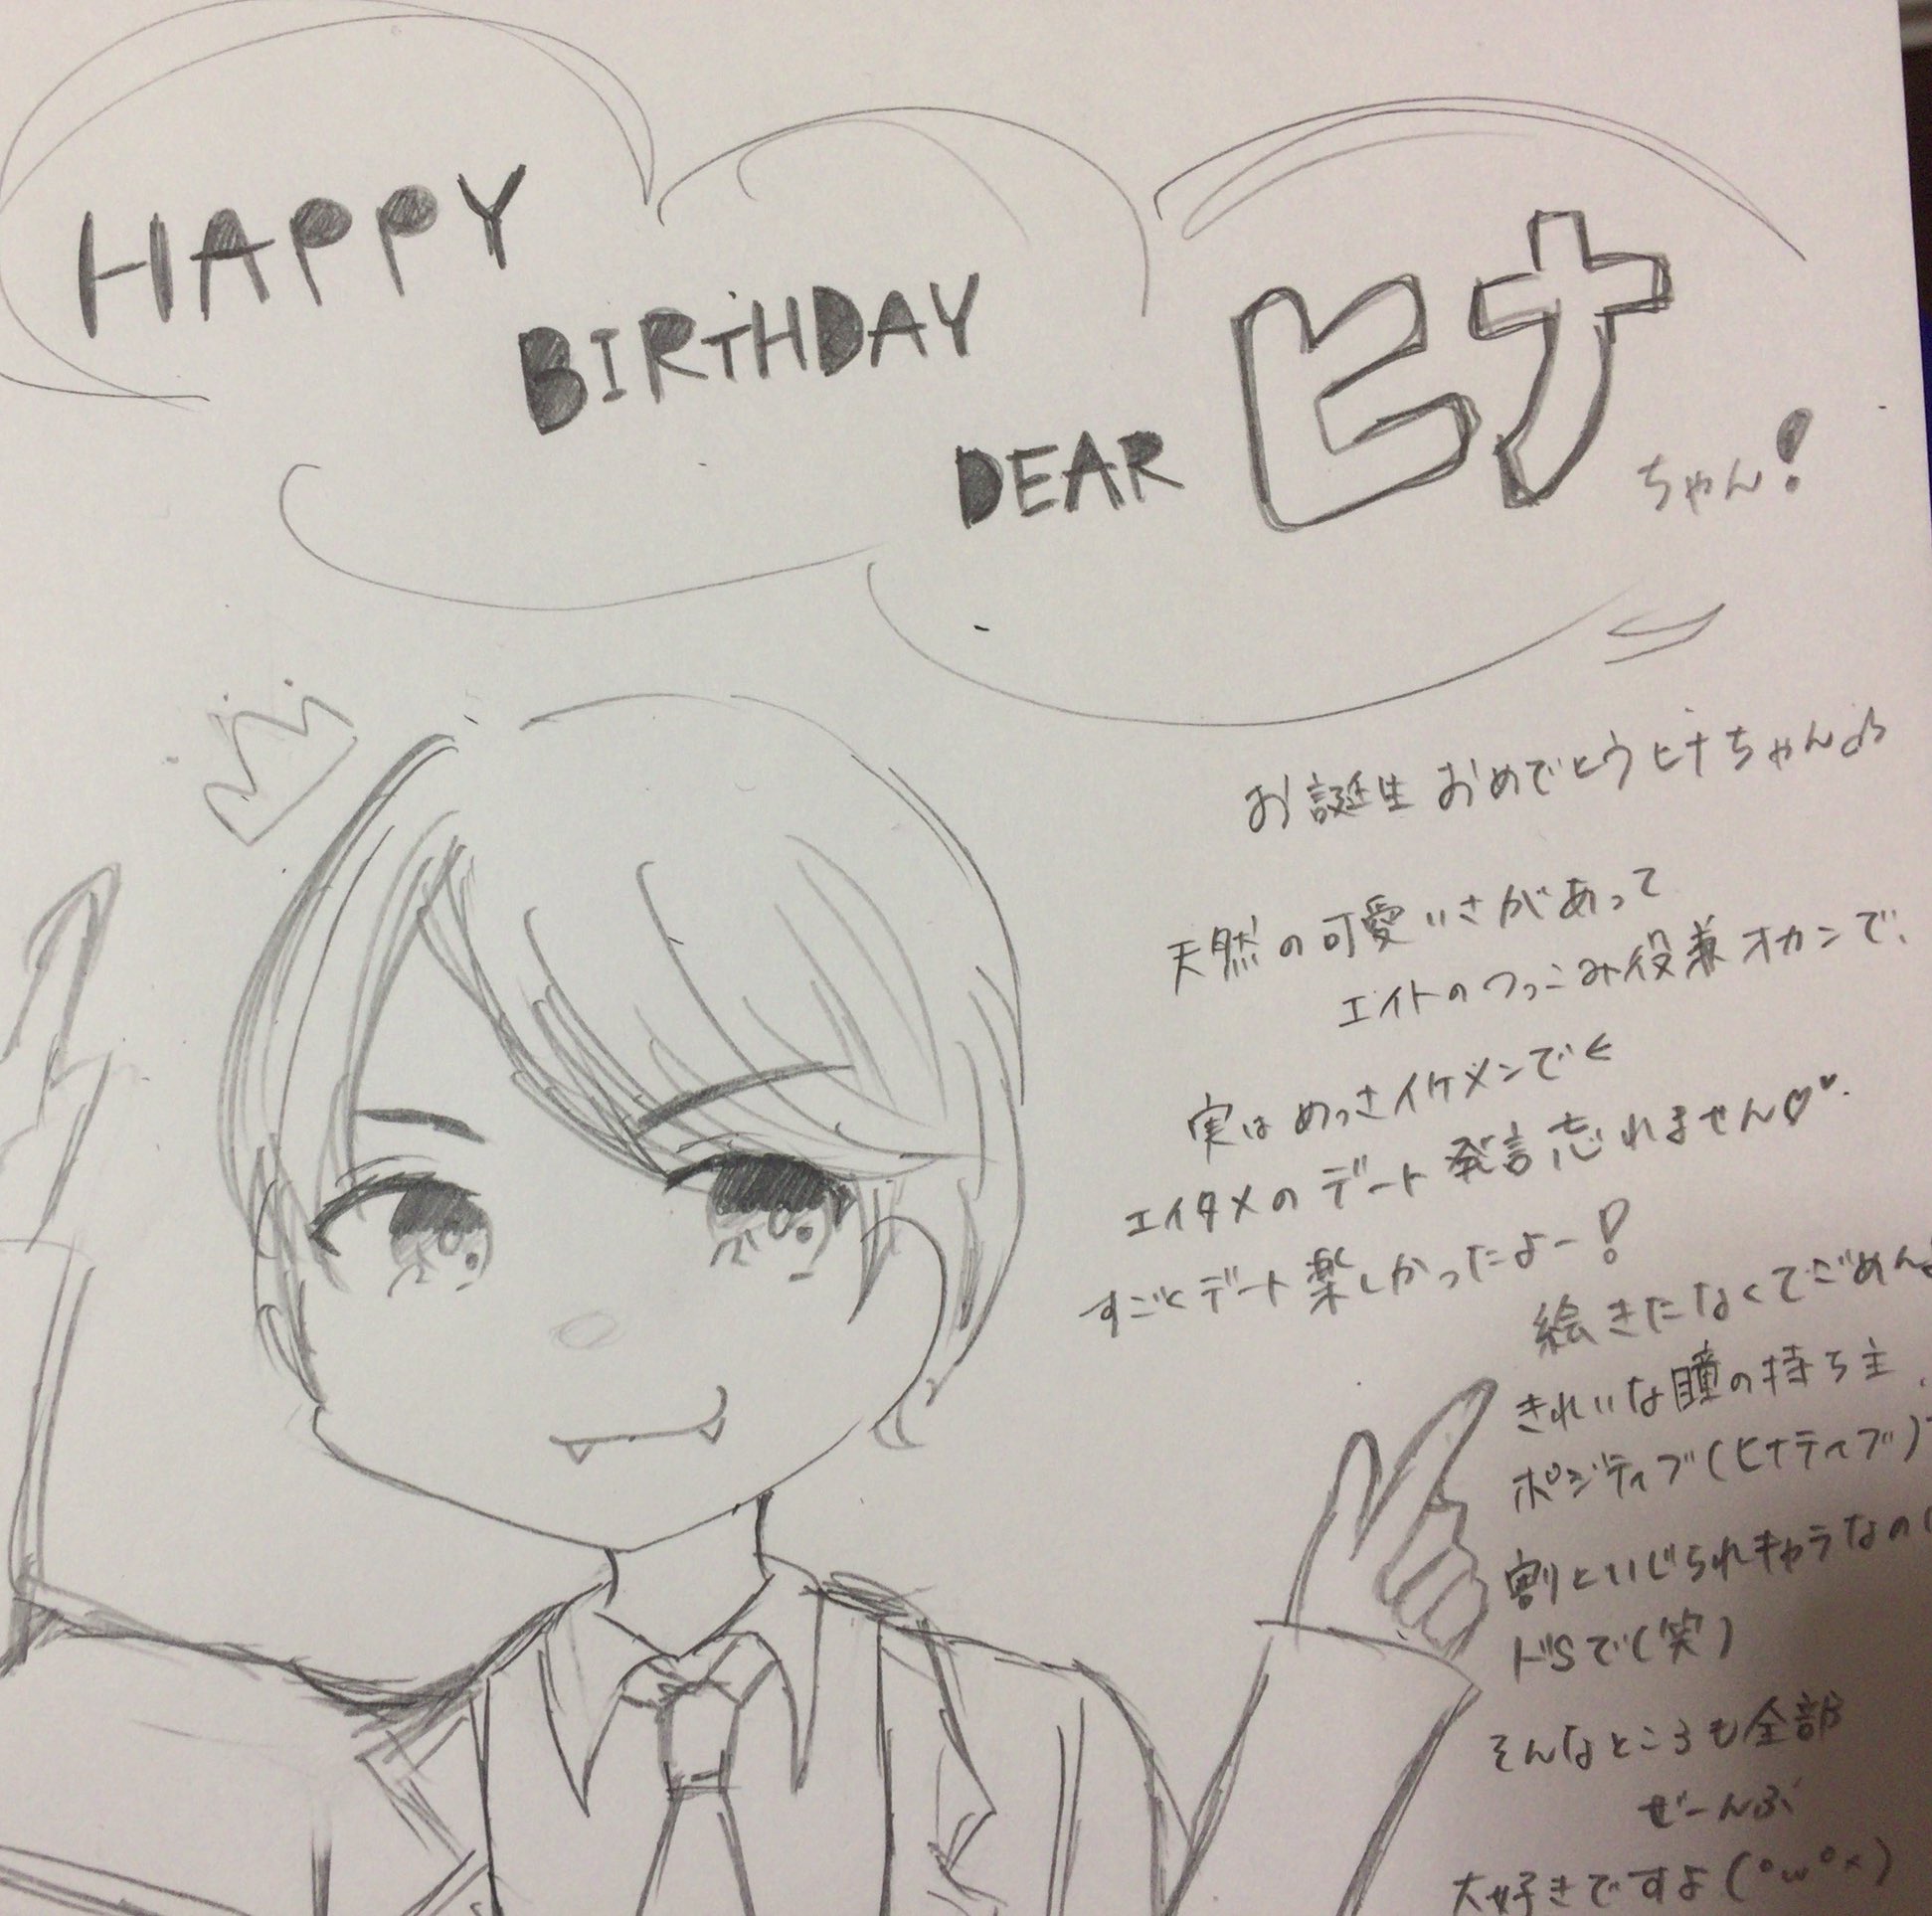 HAPPY
BIRTHDAY
DEAR ヒナちゃん!
お誕生おめでとうヒナちゃん
天然の可愛いさがあって
エイトのつっこみ役兼オカンで、
実はめっさイケメンでく
エイタメのデート発言忘れません♡♥
すごくデート楽しかったよー!
絵きたなくてごめん
きれいな瞳の持ち主
ポジティブ(ヒナティブ)
割といじられキャラなの
ドSで(笑)
そんなところも全部
ぜーんぶ
大好きですよ(°ω°×)